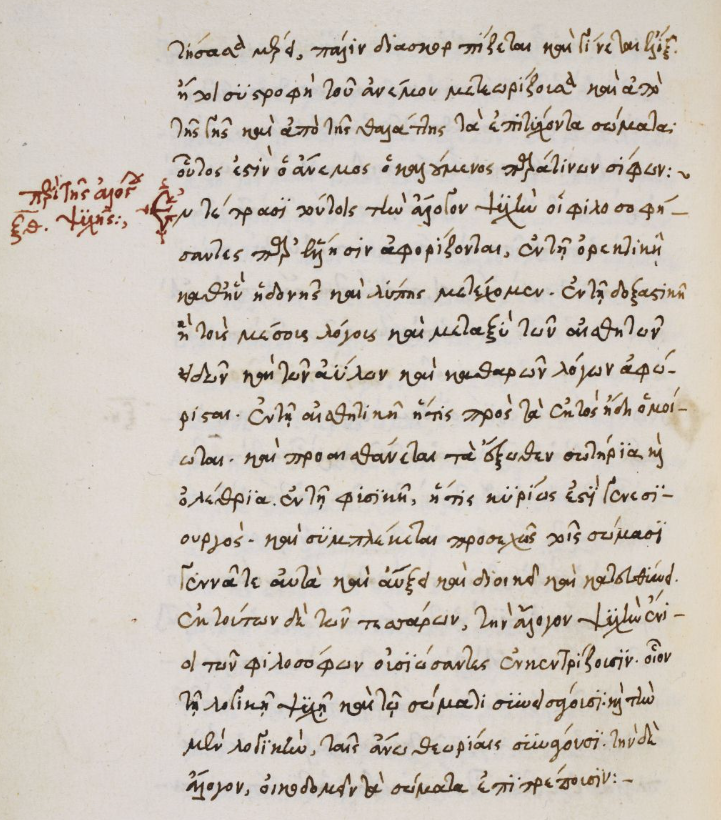 πάλιν διασπορ πίζεται καὶ γίνεται
ἡ συστροφὴ τοῦ ἀνέμου μετεωρίζουσα καὶ ἀπὸ
τῆς γῆς καὶ ἀπὸ τῆς θαλάττης τὰ ἐπιτυχόντα σώματα·
οὗτος ἐστὶν ὁ ἄνεμος ὁ καλούμενος παρὰ τινων σίφων:~
περὶ τῆς ἀλόγου
ξθ. ψυχῆς:,
Ἐν τέτρασι τούτοις τὴν ἄλογον ψυχὴν οἱ φιλοσοφή-
σαντες παρ' ἕλλησιν ἀφορίζονται, ἐν τῇ ὀρεκτικῇ
καθ' ἣν ἡδονῆς καὶ λύπης μετέχομεν. ἐν τῇ δοξαστικῇ
ἢ τοῖς μέσοις λόγοις καὶ μεταξὺ τῶν αἰσθητῶν
εἰδῶν καὶ τῶν ἀΰλων καὶ καθαρῶν λόγων ἀφώ-
ρισται. ἐν τῇ αἰσθητικῇ ἥτις πρὸς τὰ ἐκτὸς ἤδη ὁμοί-
ωται. καὶ προαισθάνεται τὰ ἔξωθεν σωτήρια καὶ
ὀλέθρια. ἐν τῇ φυσικῇ, ἥτις κυρίως ἐστὶ γενεσι-
ουργὸς. καὶ συμπλέκεται προσεχῶς τοῖς σώμασι
γεννᾶ τε αὐτὰ καὶ αὔξει καὶ διοικεῖ καὶ
ἐκ τούτων δὲ τῶν τεσσάρων, τὴν ἄλογον ψυχὴν ἔνι-
οι τῶν φιλοσόφων οὐσιώσαντες ἐγκεντρίζουσιν. οἷον
τῇ λογικῇ ψυχῇ καὶ τῷ σώματι συνεισάγουσι. καὶ τὴν
μὲν λογικὴν, ταῖς ἄνω θεωρίαις συνάγουσι. τὴν δὲ
ἄλογον, οἰκοδομεῖν τὰ σώματα ἐπιτρέπουσιν:-